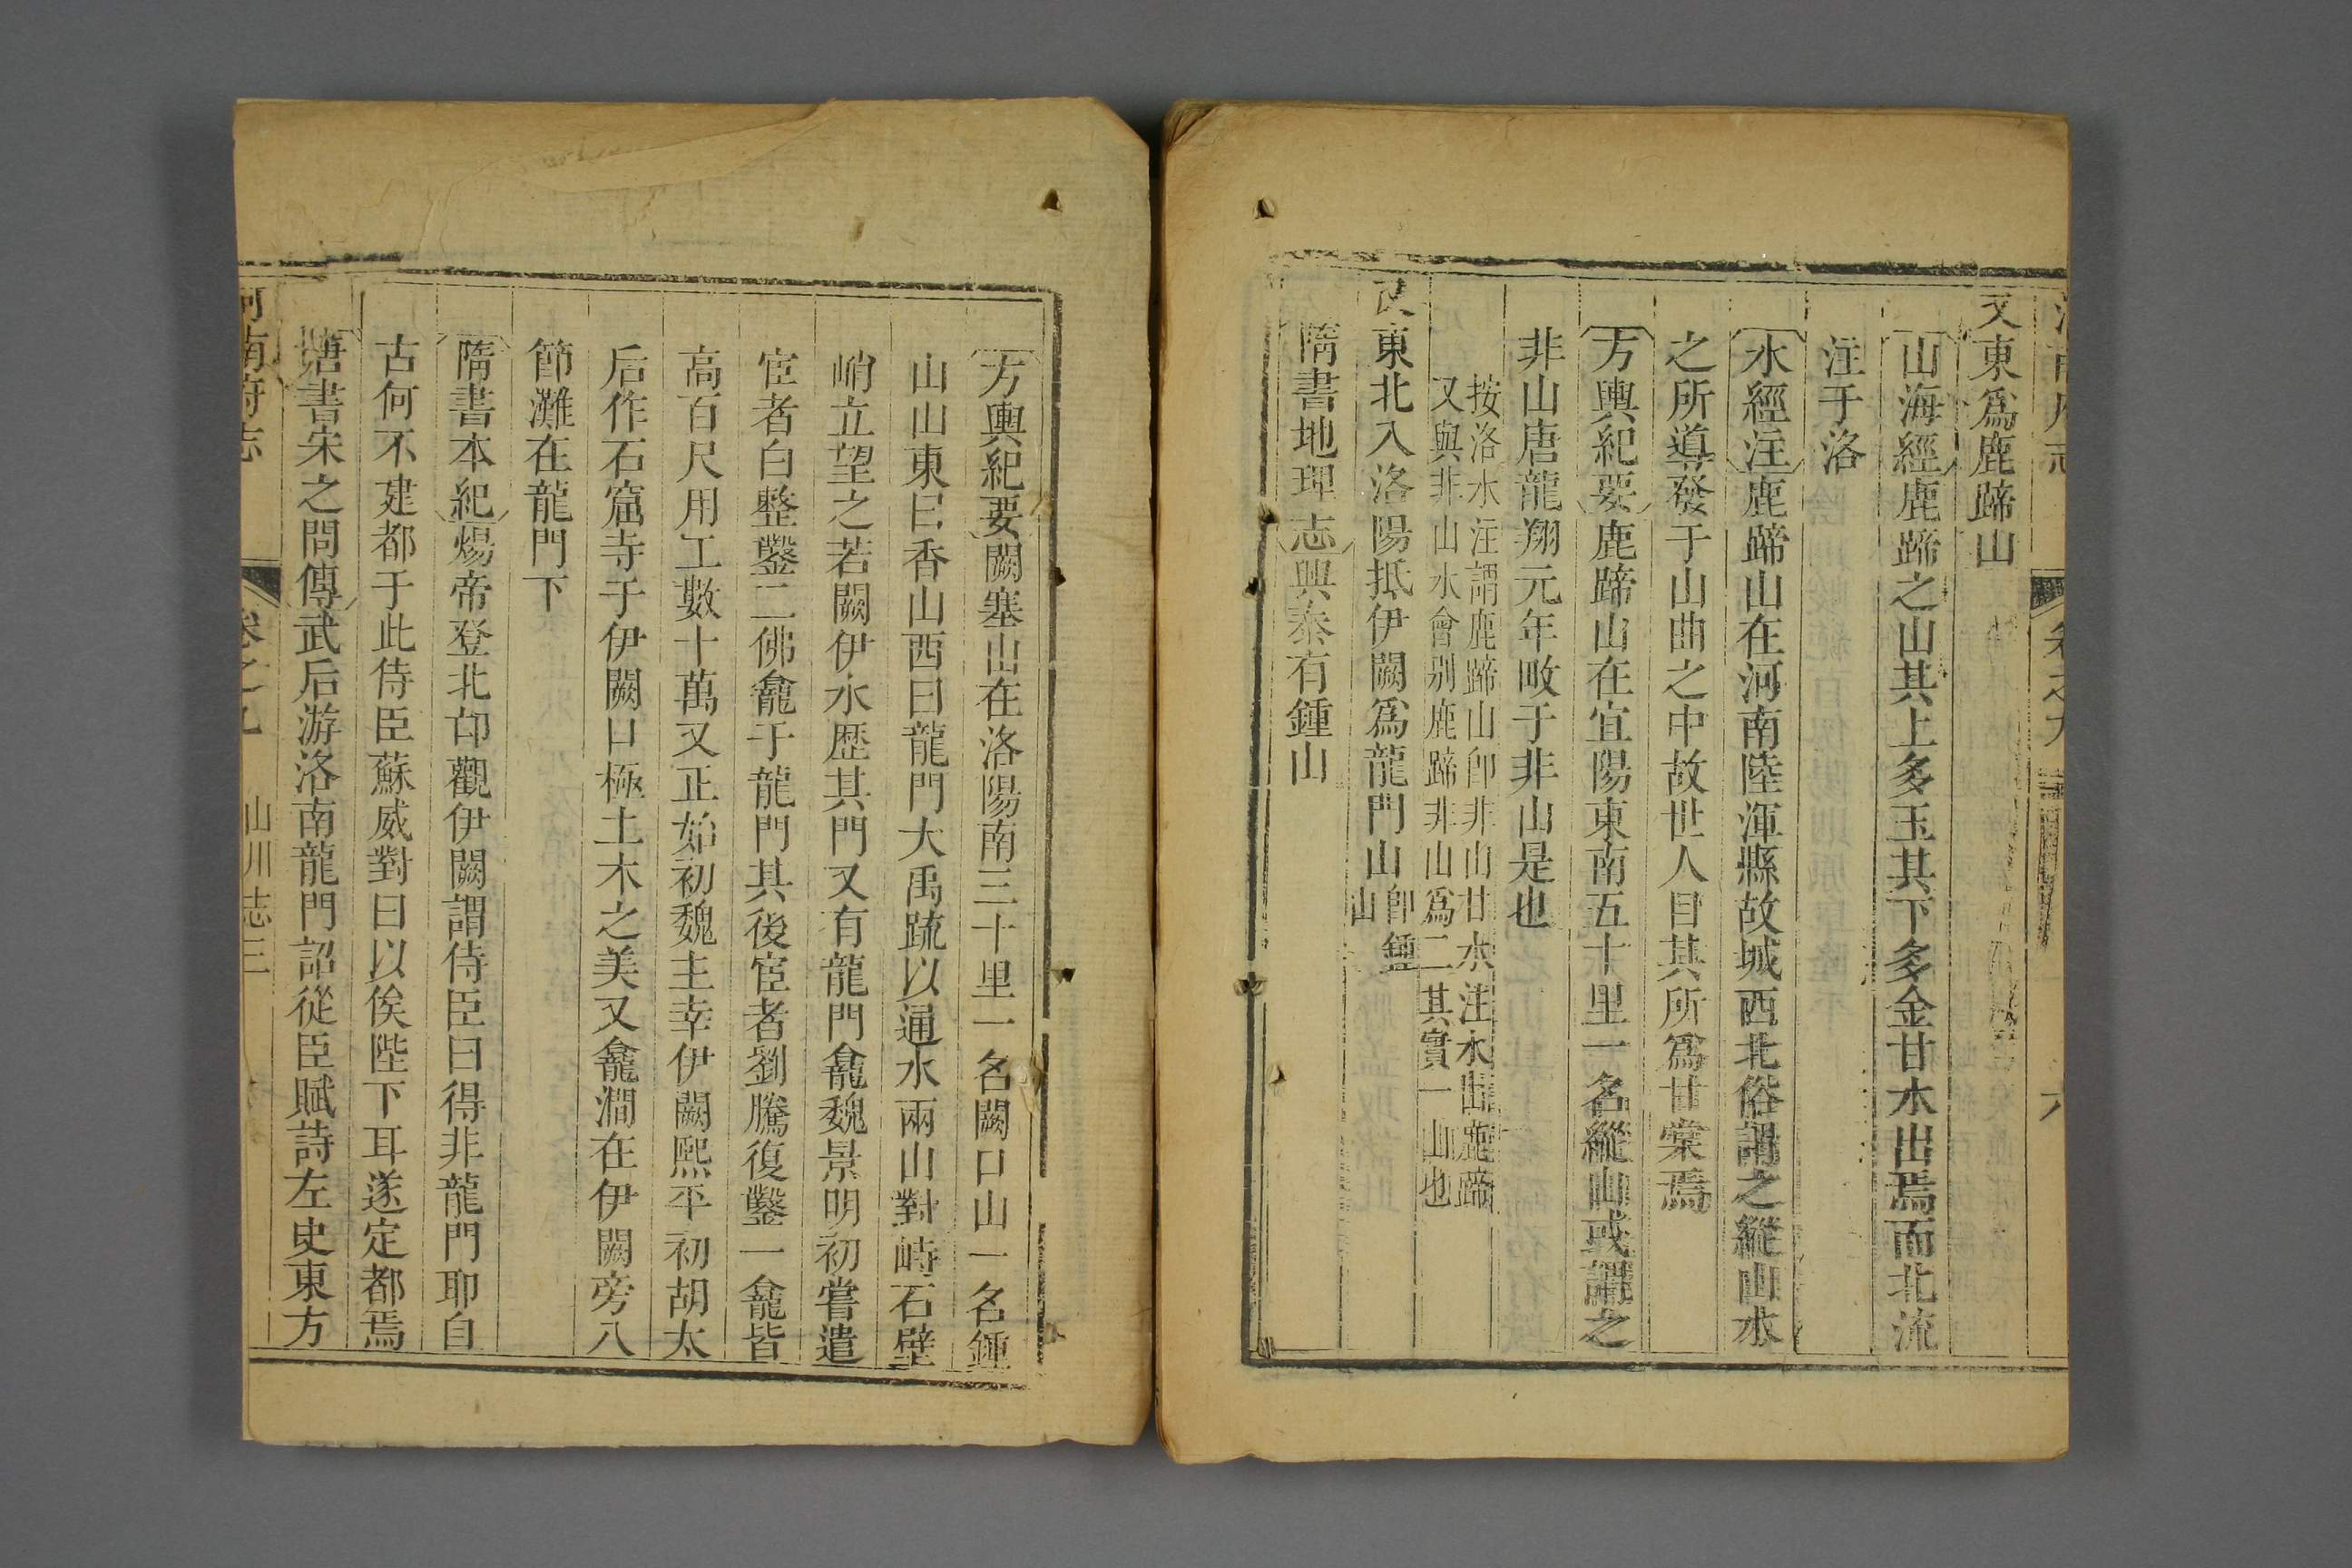 又東爲鹿蹄山
山海經鹿蹄之山其上多玉其下多金甘水出焉而北流
注于洛
水經注鹿蹄山在河南陸渾縣故城西北俗謂之縱山水
之所導發于山曲之中故世人目其所爲甘棠焉
方輿紀要鹿蹄山在宜陽東南五十里一名縱山或謂之
非山唐龍翔元年畋于非山是也
按洛水注謂鹿蹄山卽非山甘水注水出鹿蹄
又與非山水會别鹿蹄非山爲二其實一山也
東北入洛陽抵伊闕爲龍門山卽鍾
山
隋書地理志興泰有鍾山
方輿紀要闕塞山在洛陽南三十里一名闕口山一名鍾
山山東曰香山西曰龍門大禹疏以通水兩山對峙石壁
峭立望之若闕伊水歷其門又有龍門龕魏景明初嘗遣
宦者白整鑿二佛龕于龍門其後宦者劉騰復鑿一龕皆
高百尺用工數十萬又正始初魏主幸伊闕熙平初胡太
后作石窟寺于伊闕口極土木之美又龕澗在伊闕旁八
節灘在龍門下
隋書本紀煬帝登北邙觀伊闕謂侍臣曰得非龍門耶自
古何不建都于此侍臣蘇威對曰以俟陛下耳遂定都焉
唐書宋之問傳武后游洛南龍門詔從臣賦詩左史東方
河南府志
卷之九
山川志三